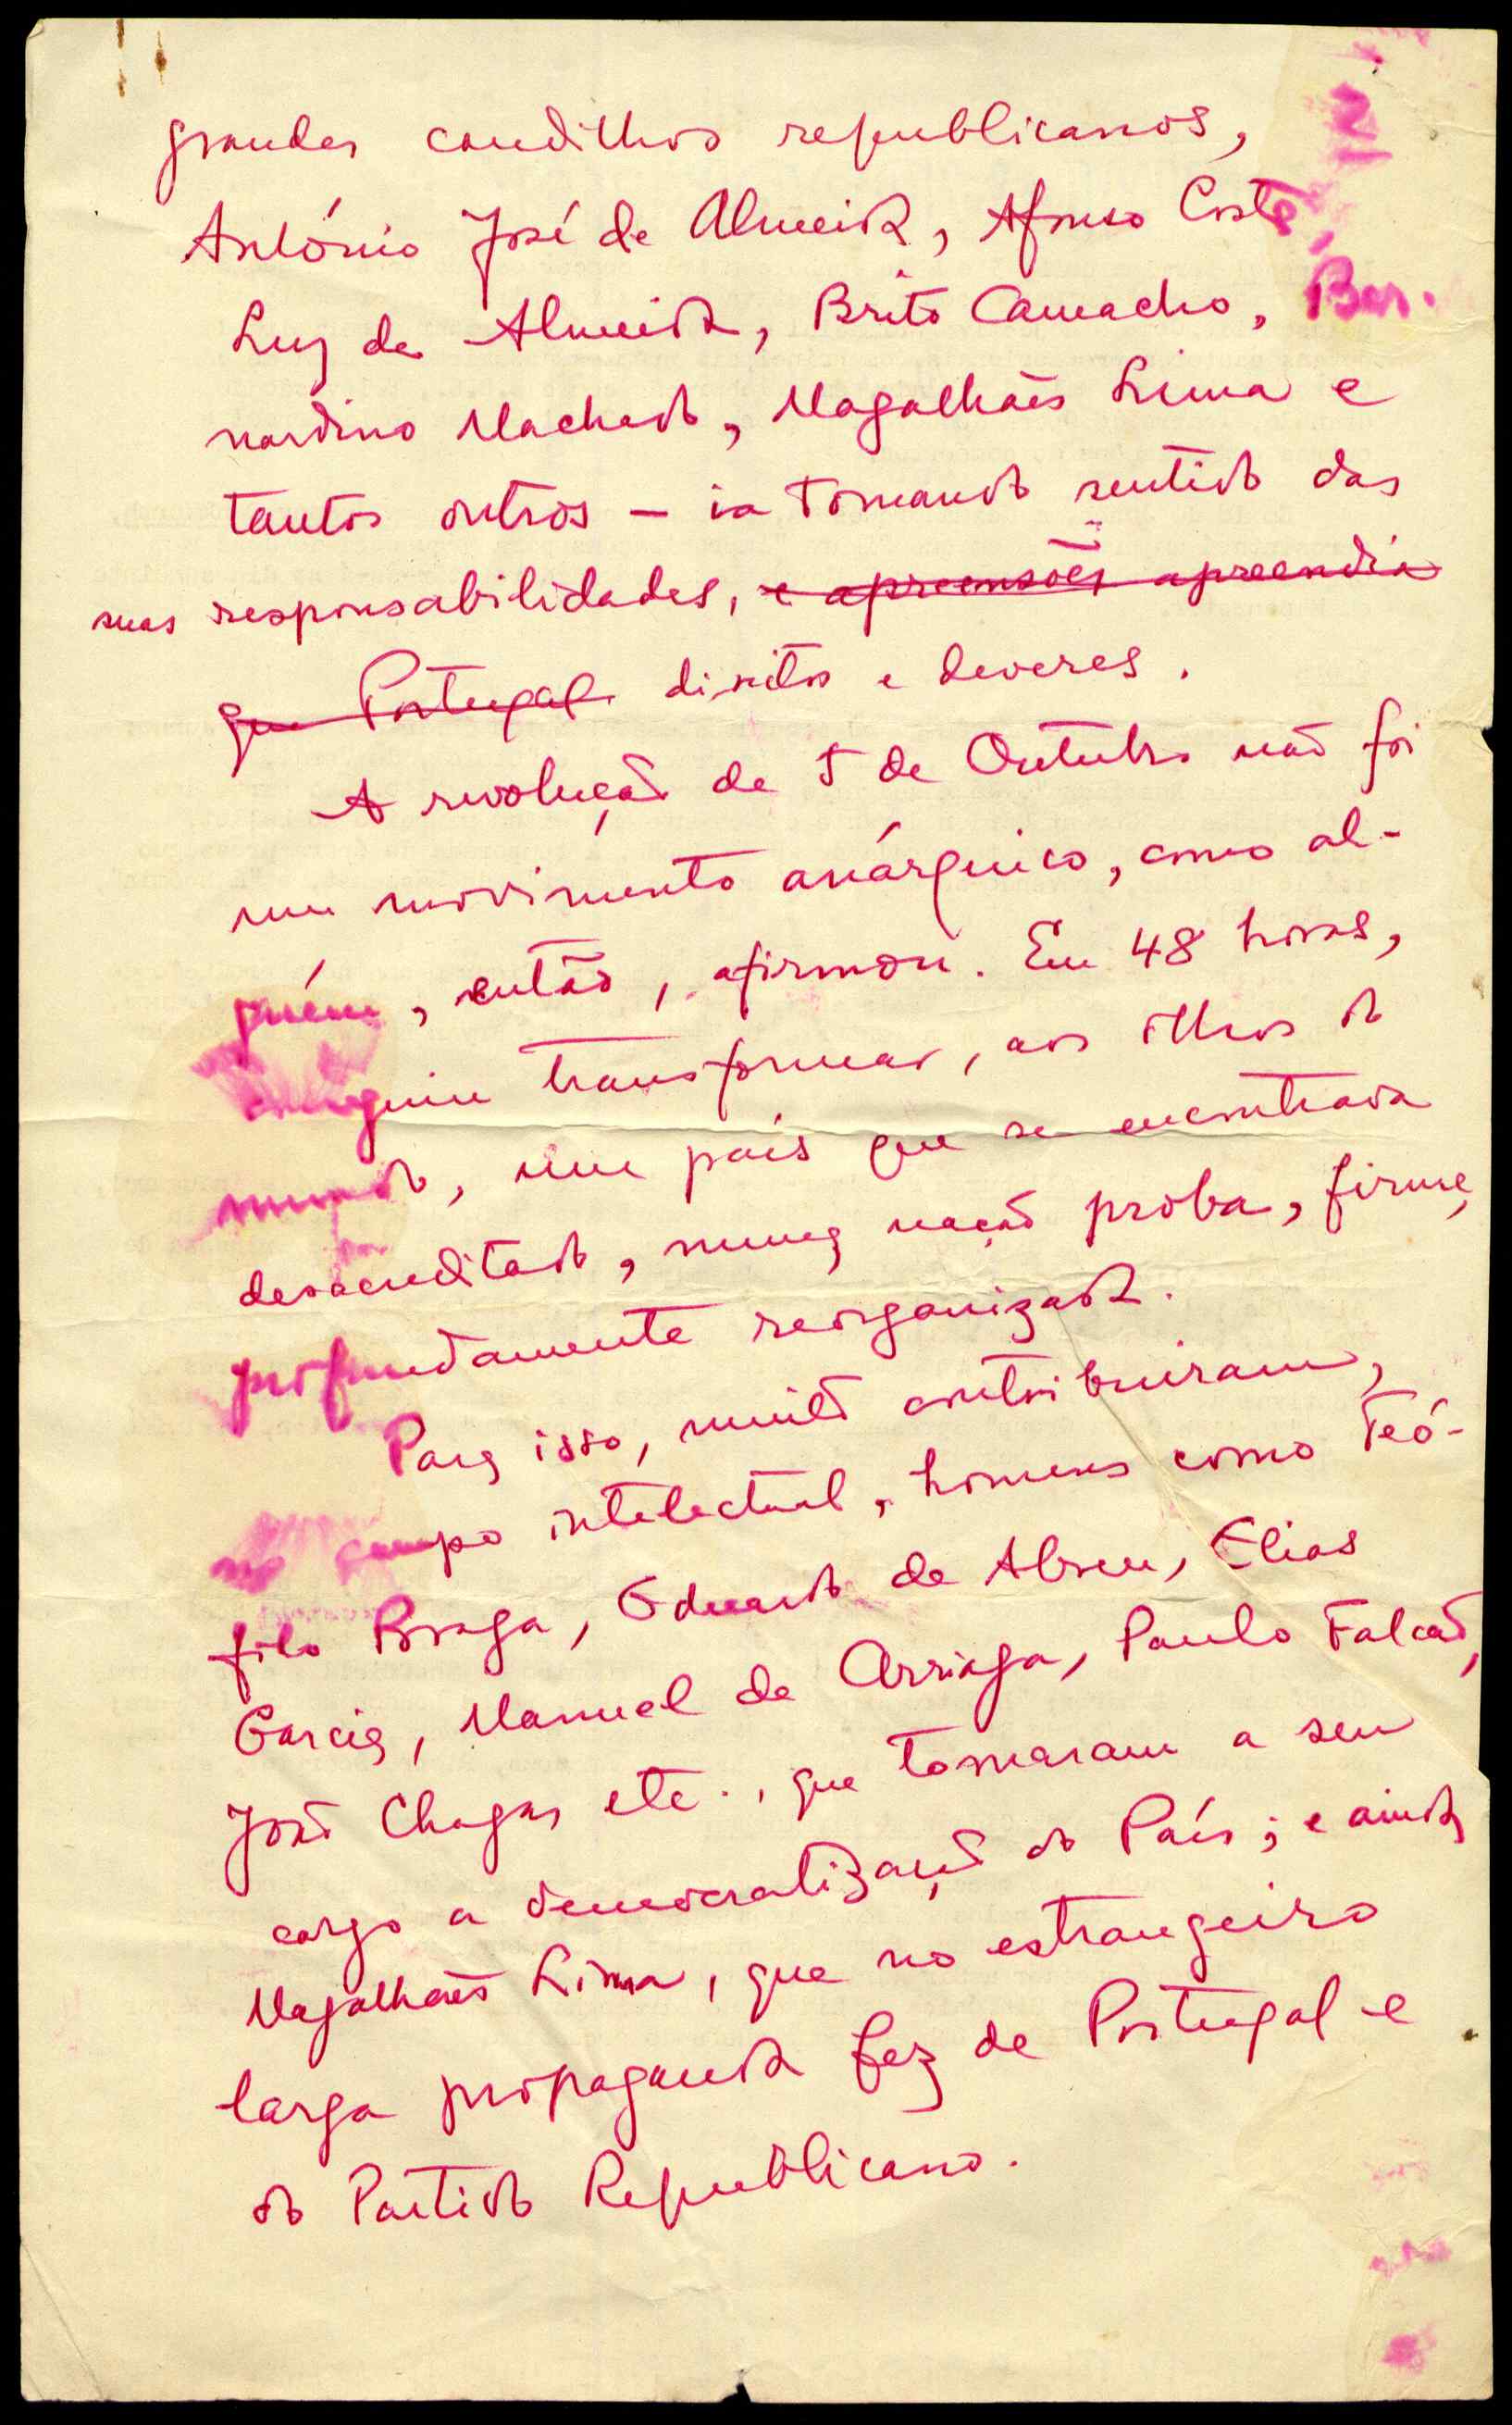 2
grandes caudilhos republicanos,
António José de Almeida, Afonso Costa,
Luz de Almeida, Brito Camacho, Ber-
nardino Machado, Magalhães Lima e
tantos outros – ia tomando sentido das
suas responsabilidades, e apreensões apreendia
que Portugal direitos e deveres.
A revolução de 5 de Outubro não foi
um movimento anárquico, como al-
guém, então, afirmou. Em 48 horas,
conseguiu transformar, aos olhos do
mundo, um país que se encontrava
desacreditado, numa nação proba, firme,
profundamente reorganizada.
Para isso, muito contribuiram,
no campo intelectual, homens como Teó-
filo Braga, Eduardo de Abreu, Elias
Garcia, Manuel de Arriaga, Paulo Falcão,
João Chagas etc., que tomaram a seu
cargo a democratização do País; e ainda
Magalhães Lima, que no estrangeiro
larga propaganda fez de Portugal e
do Partido Republicano.